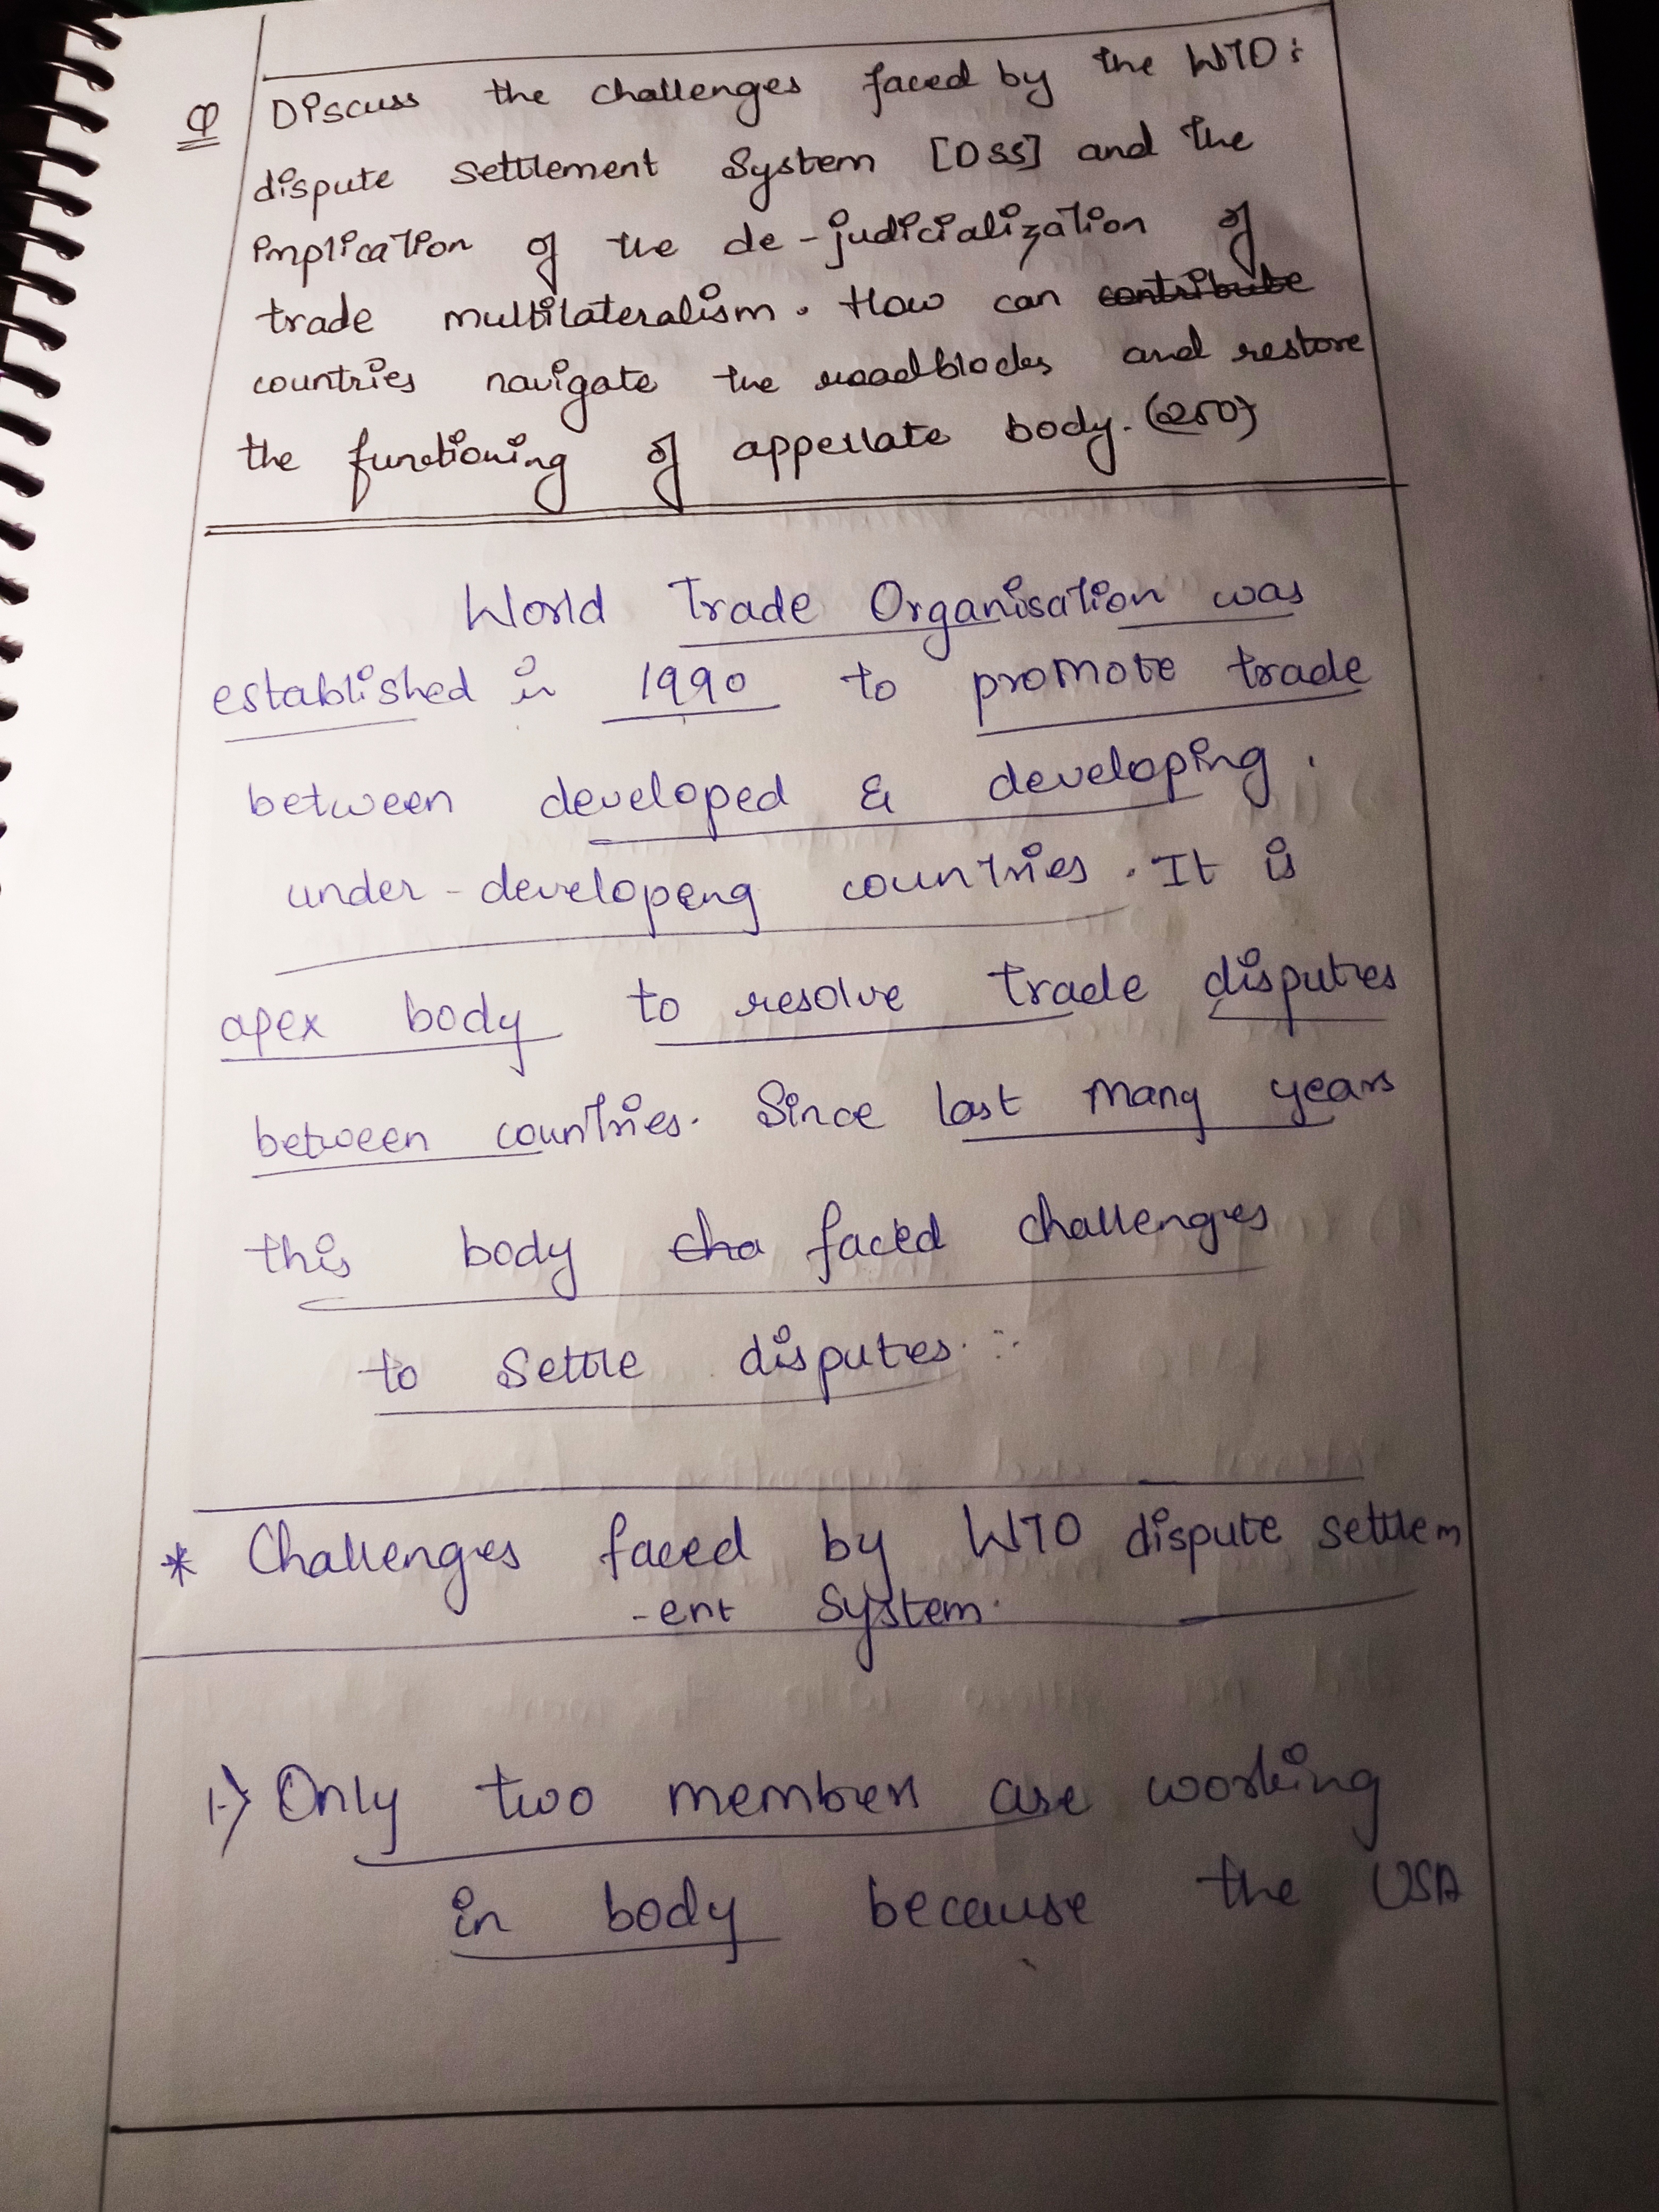 Q Discuss the challenges faced by the WTO's
dispute settlement system [DSS] and the
implication of the de-judicialization of
trade multilateralism. How can contribute
countries navigate the roadblocks and restore
the functioning of appellate body. (250)
World Trade Organisation was
established in 1990 to promote trade
between developed & developing.
under-developeng countries. It is
apex body to resolve trade disputes
between countries. Since last many years
this body cha faced challenges
to settle disputes :-
* Challenges faced by WTO dispute settlem
-ent system.
1.) Only two members are working
in body because the USA